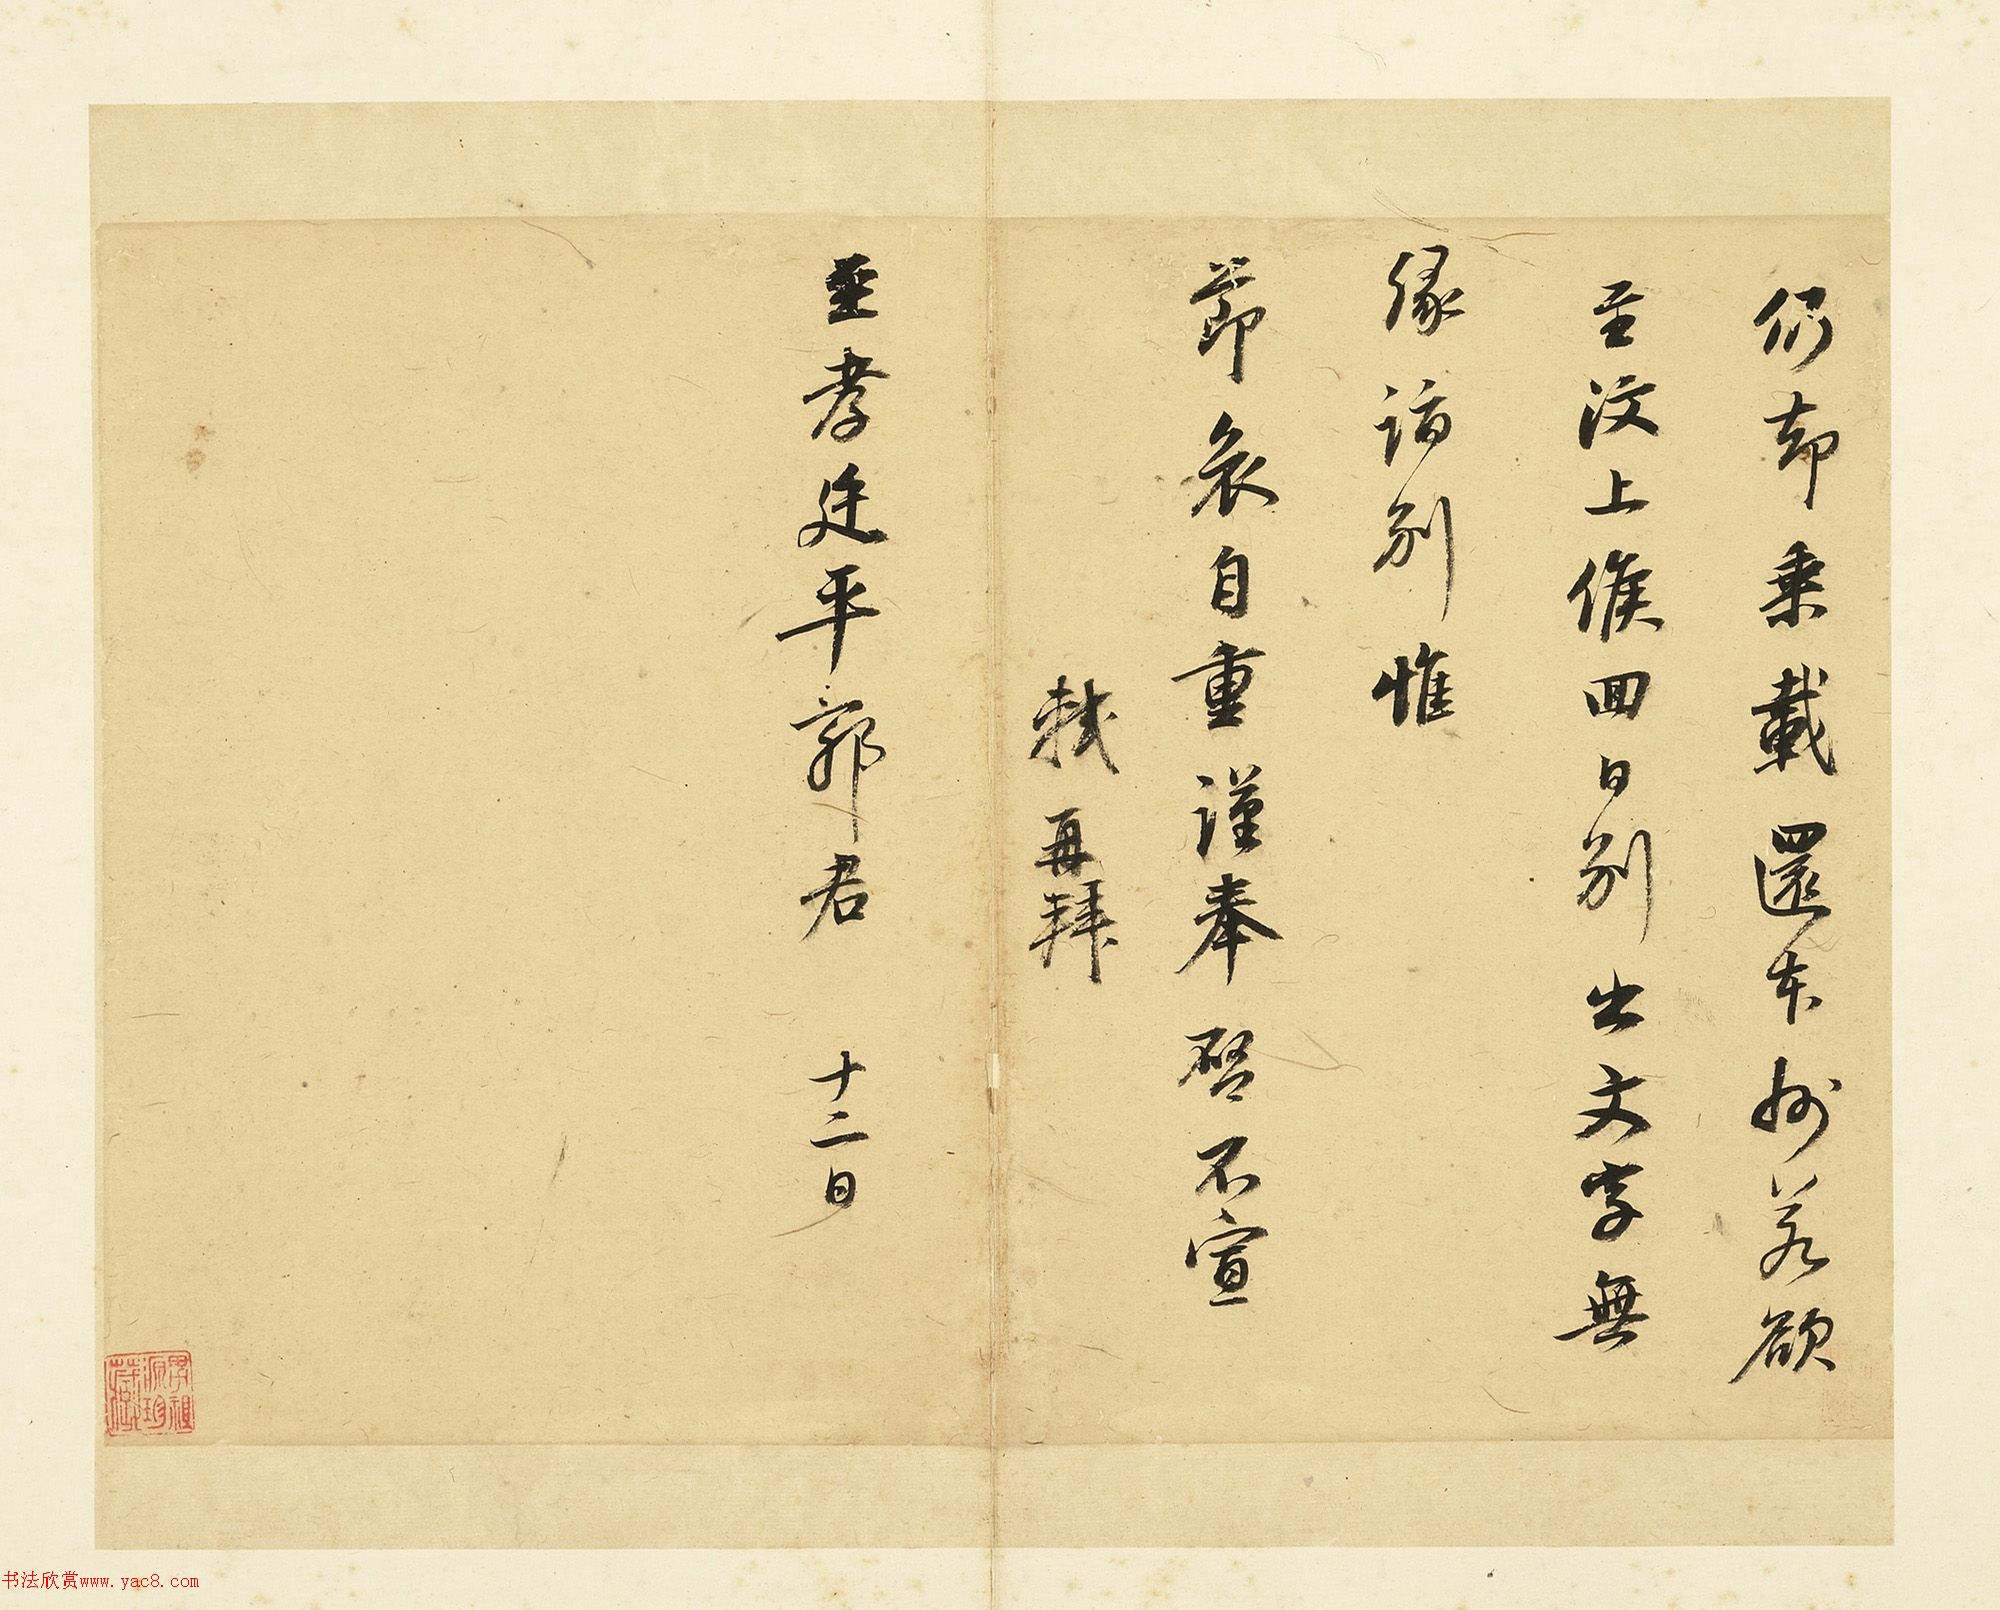 仍却乘載還本州若欲
至汶上候回日别出文字無
緣訪别惟
節哀自重謹奉啓不宣
軾再拜
至孝廷平郭君 十二日
书法欣赏www.yac8.com